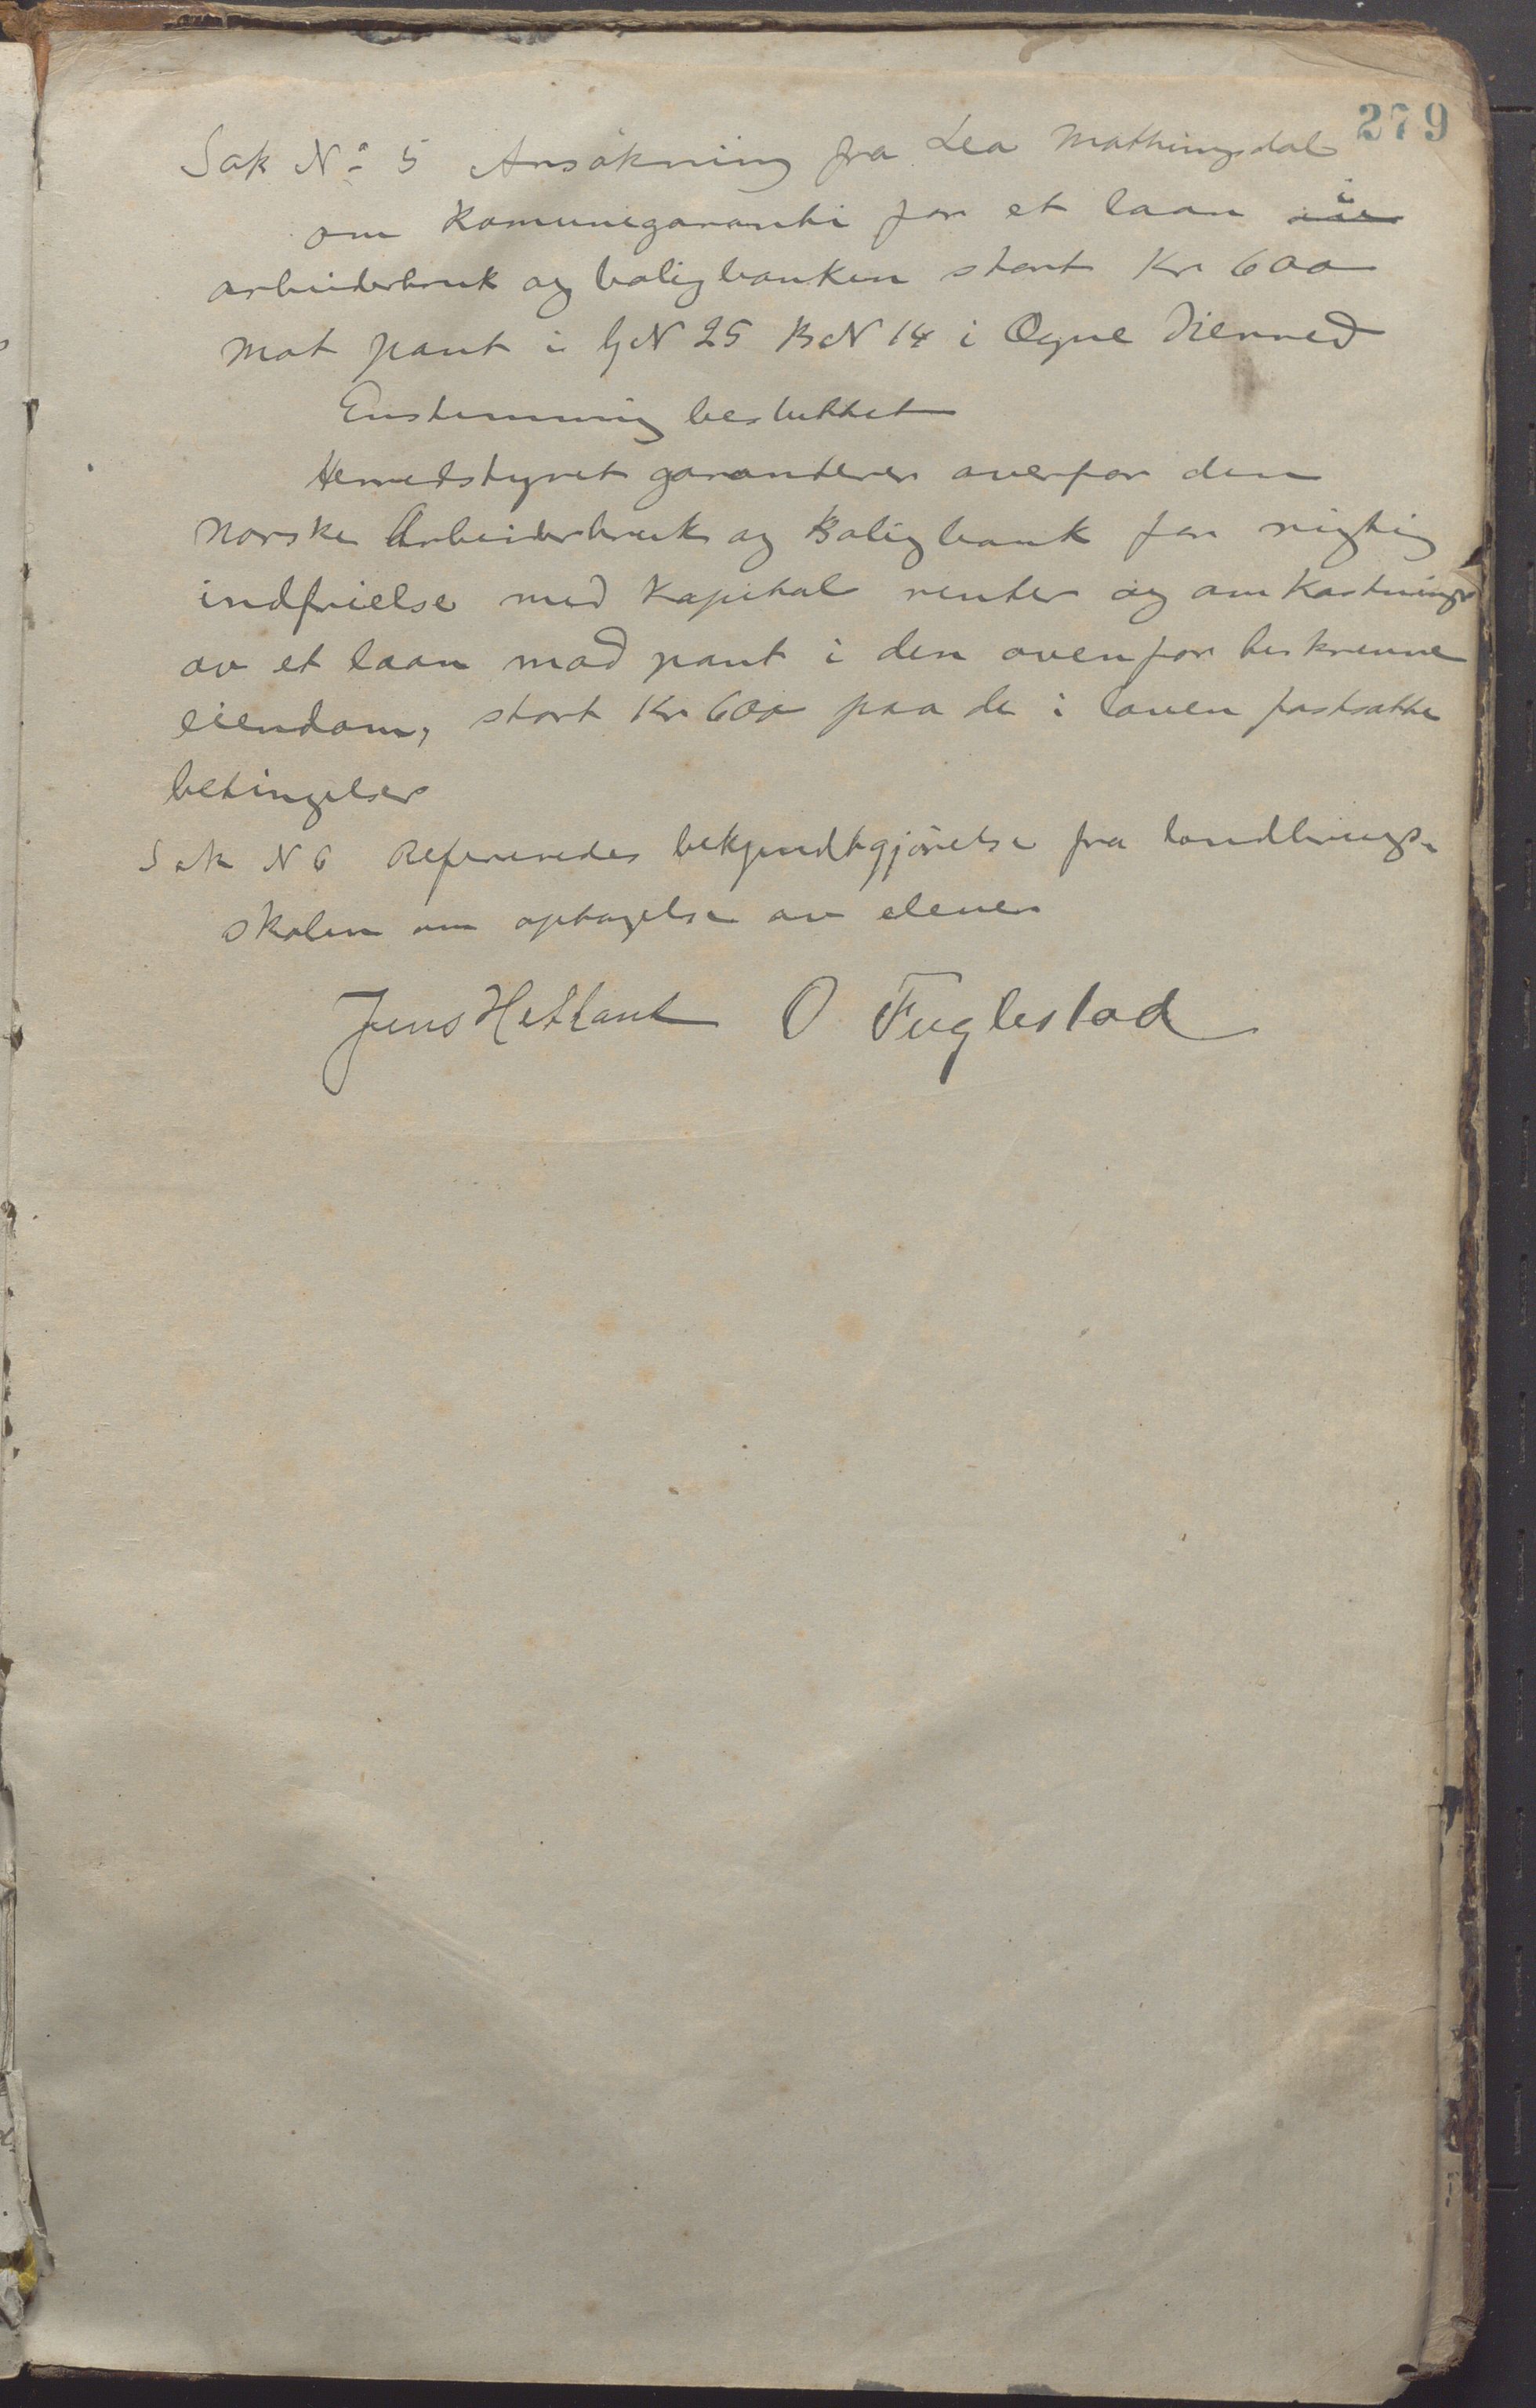 279
Sak No 5 Ansökning fra Lea Mathingsdal
om Komunegaranti for et laan i
arbeiderbruk og boligbanken stort Kr 600
mot pant i GN 25 BN 14 i Ogne Herred
Enstemmig besluttet
Herredstyret garanterer overfor den
norske Arbeiderbruk og Boligbank for rigtig
indfrielse med Kapital renter og omkostninger
av et laan mod pant i den ovenfor beskrevne
eiendom, stort Kr 600 paa de i loven fastsatte
betingelser
Sak N 6 Refereredes bekjendtgjörelse fra landbrugs-
skolen om optagelse av elever
Jens Hetland O Fuglestad